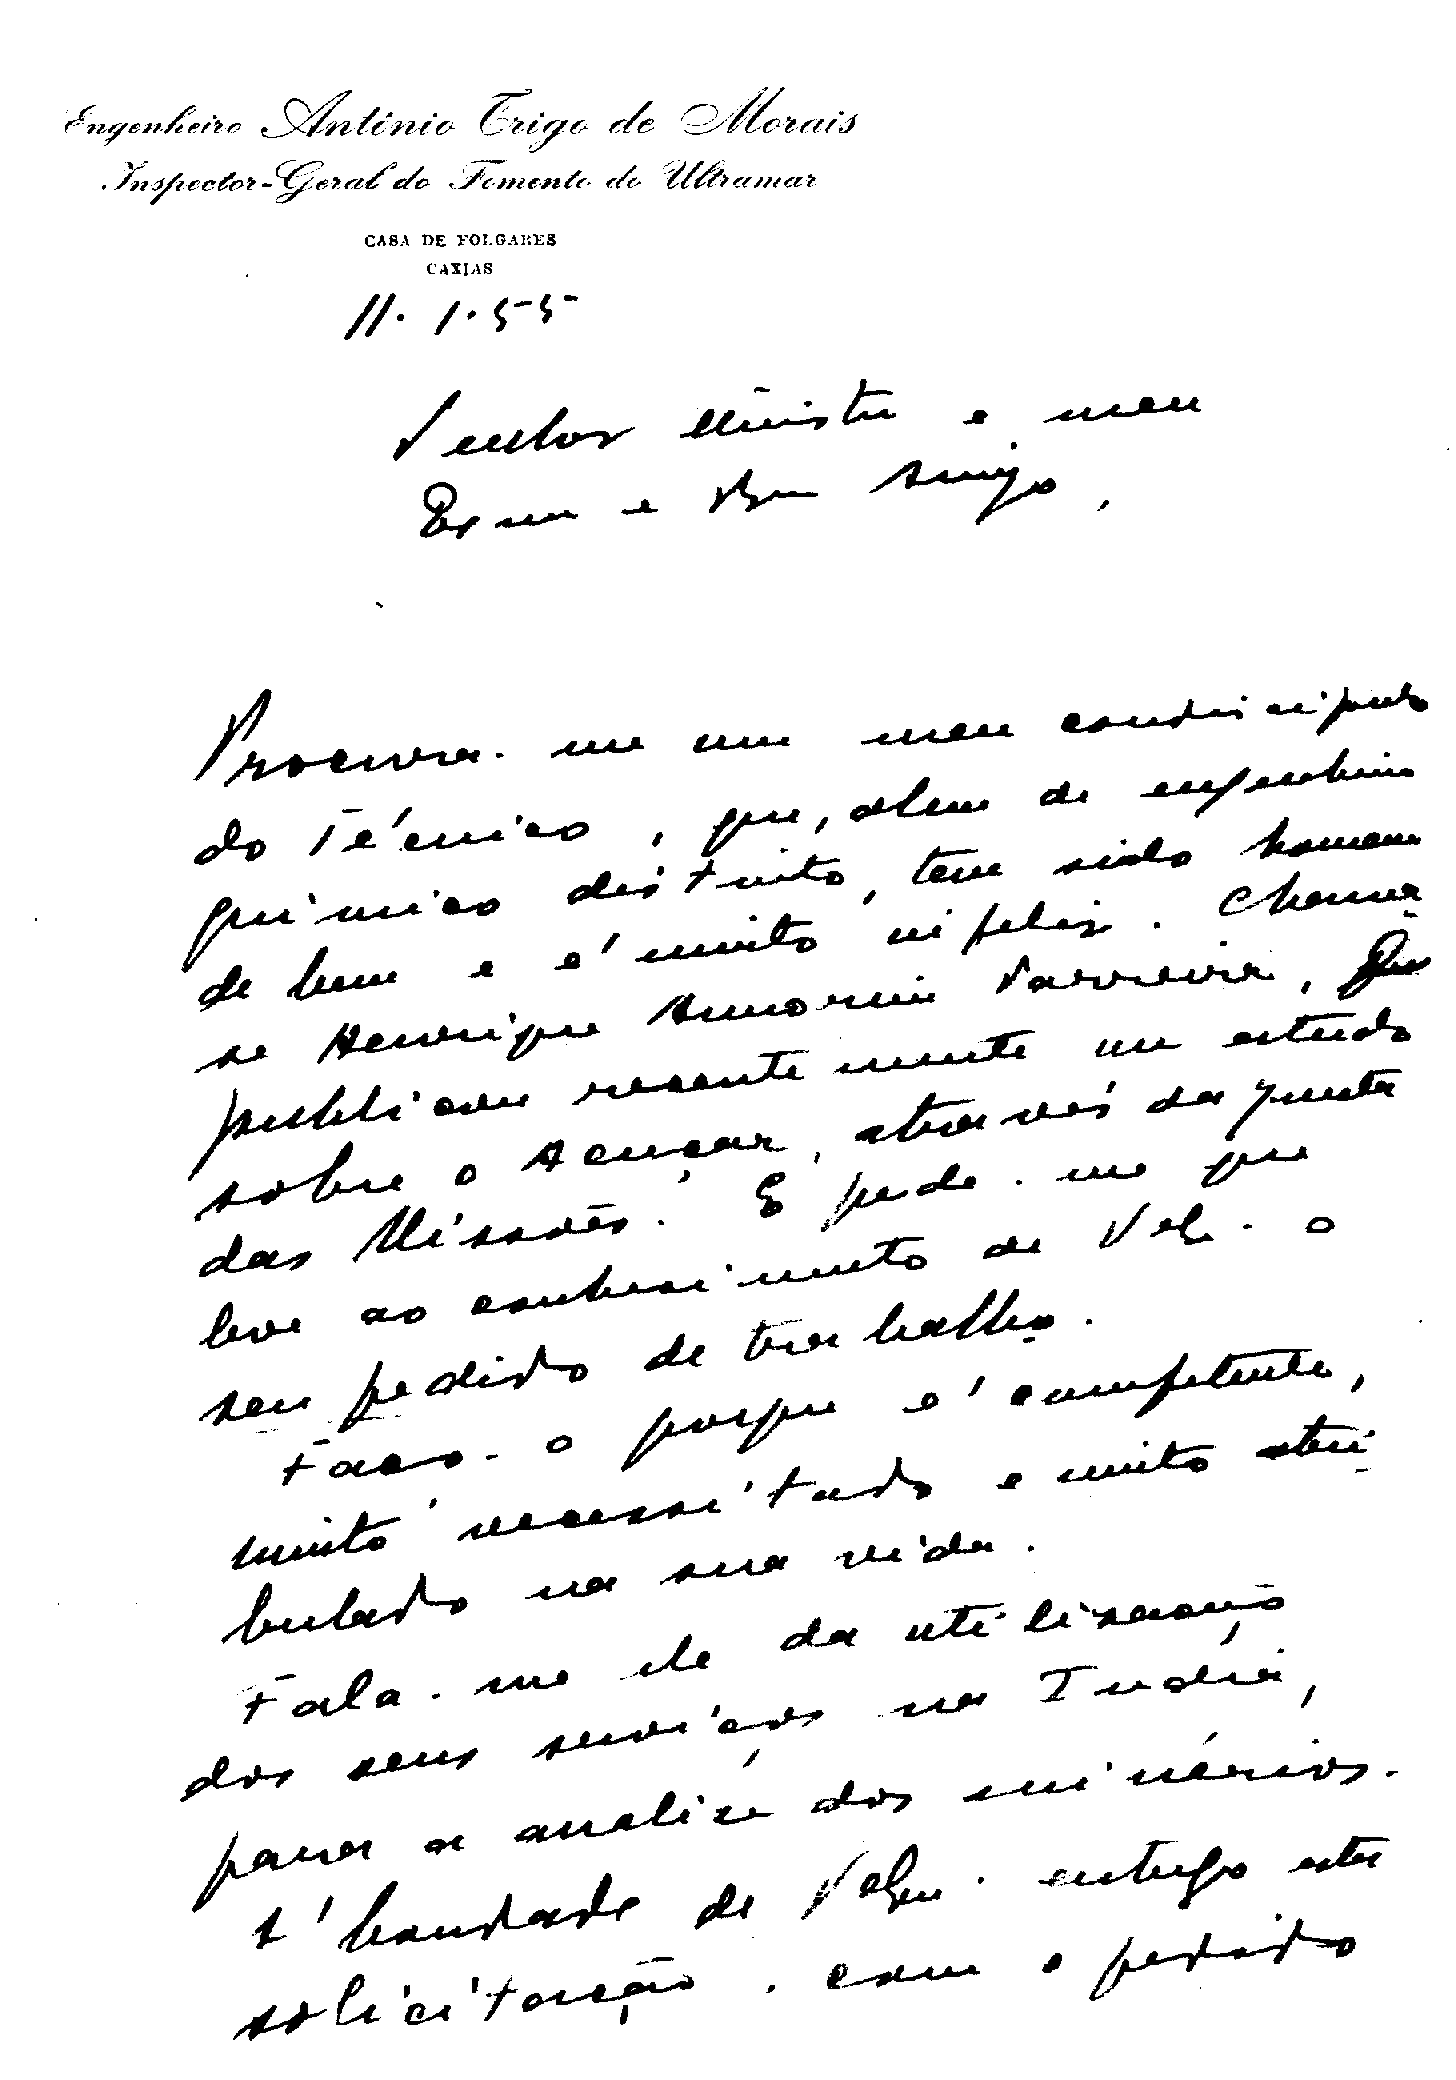 Engenheiro António Trigo de Morais
Inspector-Geral do Fomento do Ultramar
CASA DE FOLGARES
CAXIAS
11. 1. 55
Senhor Ministro e meu
Exmo e Bom Amigo,
Procura-me um meu condiscipulo
do Técnico, que, alem de engenheiro
quimico distinto, tem sido homem
de bem e é muito infeliz. Chama
se Henrique Amorim Parreira, que
publicou recentemente um estudo
sobre o Açucar, através da Junta
das Missões. E pede-me que
leve ao conhecimento de V. o
seu pedido de trabalho.
Faço-o porque é competente,
muito necessitado e muito atri
bulado na sua vida.
Fala-me ele da utilização
dos seus serviços na India,
para a analise dos minérios.
A' bondade de V. entrego esta
solicitação, com o pedido